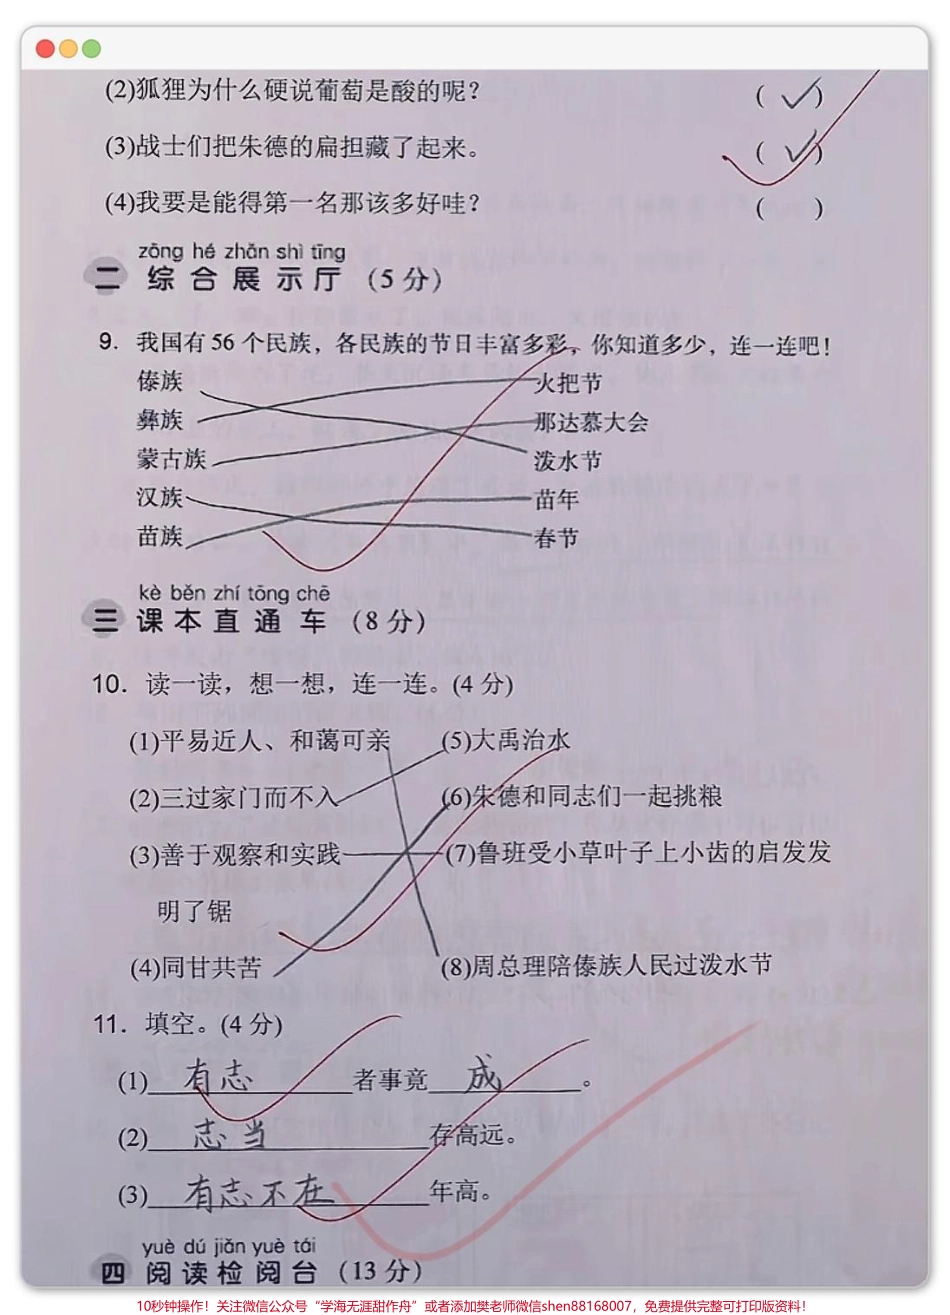 (2)狐狸为什么硬说葡萄是酸的呢? (✓)
(3)战士们把朱德的扁担藏了起来。 (✓)
(4)我要是能得第一名那该多好哇? ( )
zōng hé zhǎn shì tīng
二 综合展示厅 (5分)
9. 我国有56个民族，各民族的节日丰富多彩，你知道多少，连一连吧!
傣族 火把节
彝族 那达慕大会
蒙古族 泼水节
汉族 苗年
苗族 春节
kè běn zhí tōng chē
三 课本直通车 (8分)
10. 读一读，想一想，连一连。(4分)
(1)平易近人、和蔼可亲 (5)大禹治水
(2)三过家门而不入 (6)朱德和同志们一起挑粮
(3)善于观察和实践 (7)鲁班受小草叶子上小齿的启发发
明了锯
(4)同甘共苦 (8)周总理陪傣族人民过泼水节
11. 填空。(4分)
(1)有志者事竟成。
(2)志当存高远。
(3)有志不在年高。
yuè dú jiǎn yuè tái
四 阅读检阅台 (13分)
10秒钟操作！关注微信公众号“学海无涯甜作舟”或者添加樊老师微信shen88168007，免费提供完整可打印版资料！